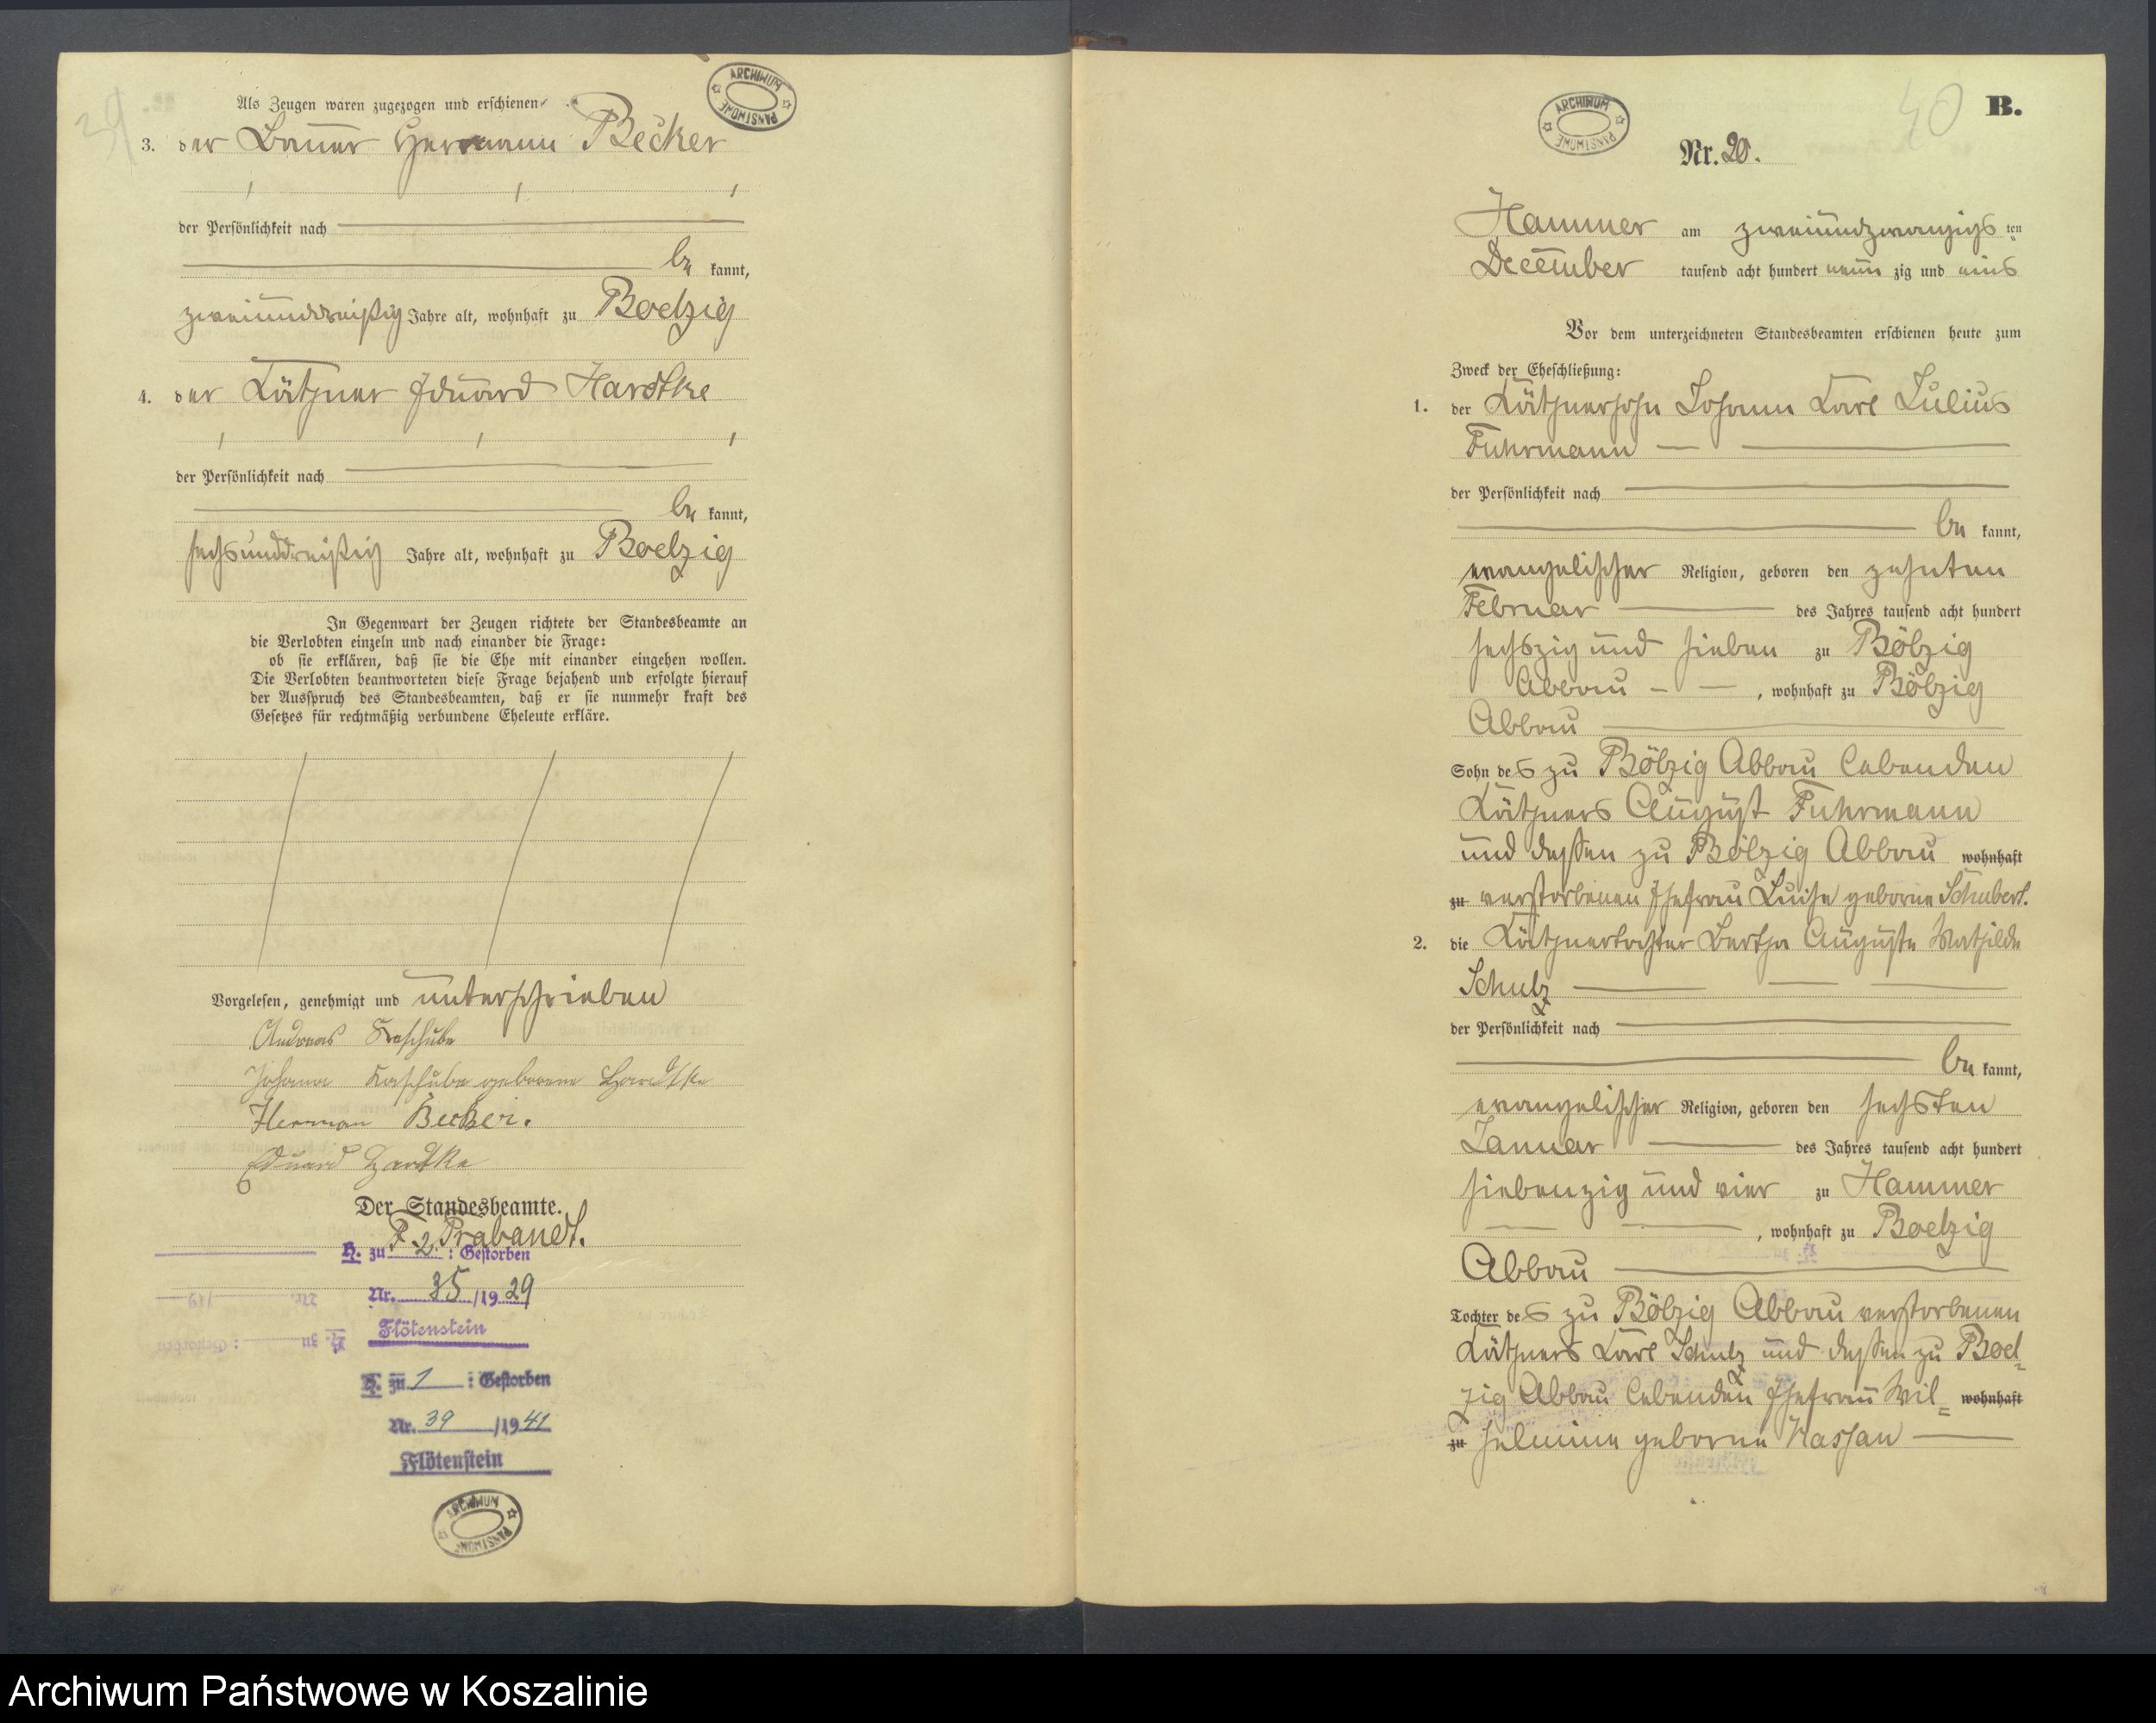 39
Als Zeugen waren zugezogen und erschienen
ARCHIWUM PAŃSTWOWE
3. der Bauer Hermann Becker
der Persönlichkeit nach
be kannt,
zweiunddreißig Jahre alt, wohnhaft zu Boelzig
4. der Käthner Eduard Hardtke
der Persönlichkeit nach
be kannt,
sechsunddreißig Jahre alt, wohnhaft zu Boelzig
In Gegenwart der Zeugen richtete der Standesbeamte an
die Verlobten einzeln und nach einander die Frage:
ob sie erklären, daß sie die Ehe mit einander eingehen wollen.
Die Verlobten beantworteten diese Frage bejahend und erfolgte hierauf
der Ausspruch des Standesbeamten, daß er sie nunmehr kraft des
Gesetzes für rechtmäßig verbundene Eheleute erkläre.
Vorgelesen, genehmigt und unterschrieben
Andreas Kaschube
Johana Kaschube geborene Hardtke
Herman Becker.
Eduard Hardtke
Der Standesbeamte.
F. Prabandt.
H. zu 2. : Gestorben
Nr. 35 /19 29
Flötenstein
H. zu 1 : Gestorben
Nr. 39 /19 41
Flötenstein
ARCHIWUM PAŃSTWOWE
40
B.
ARCHIWUM PAŃSTWOWE
Nr. 20.
Hammer am zweiundzwanzigs ten
December tausend acht hundert neun zig und eins
Vor dem unterzeichneten Standesbeamten erschienen heute zum
Zweck der Eheschließung:
1. der Käthnersohn Johann Carl Julius
Fuhrmann
der Persönlichkeit nach
be kannt,
evangelischer Religion, geboren den zehnten
Februar des Jahres tausend acht hundert
sechszig und sieben zu Bölzig
Abbau , wohnhaft zu Bölzig
Abbau
Sohn des zu Bölzig Abbau lebenden
Käthners August Fuhrmann
und dessen zu Bölzig Abbau wohnhaft
zu verstorbenen Ehefrau Luise geborne Schubert.
2. die Käthnertochter Bertha Auguste Mathilde
Schulz
der Persönlichkeit nach
be kannt,
evangelischer Religion, geboren den sechsten
Januar des Jahres tausend acht hundert
siebenzig und vier zu Hammer
, wohnhaft zu Boelzig
Abbau
Tochter des zu Bölzig Abbau verstorbenen
Käthners Carl Schulz und dessen zu Boel-
zig Abbau lebenden Ehefrau Wil= wohnhaft
zu helmine geborne Nassan
Archiwum Państwowe w Koszalinie